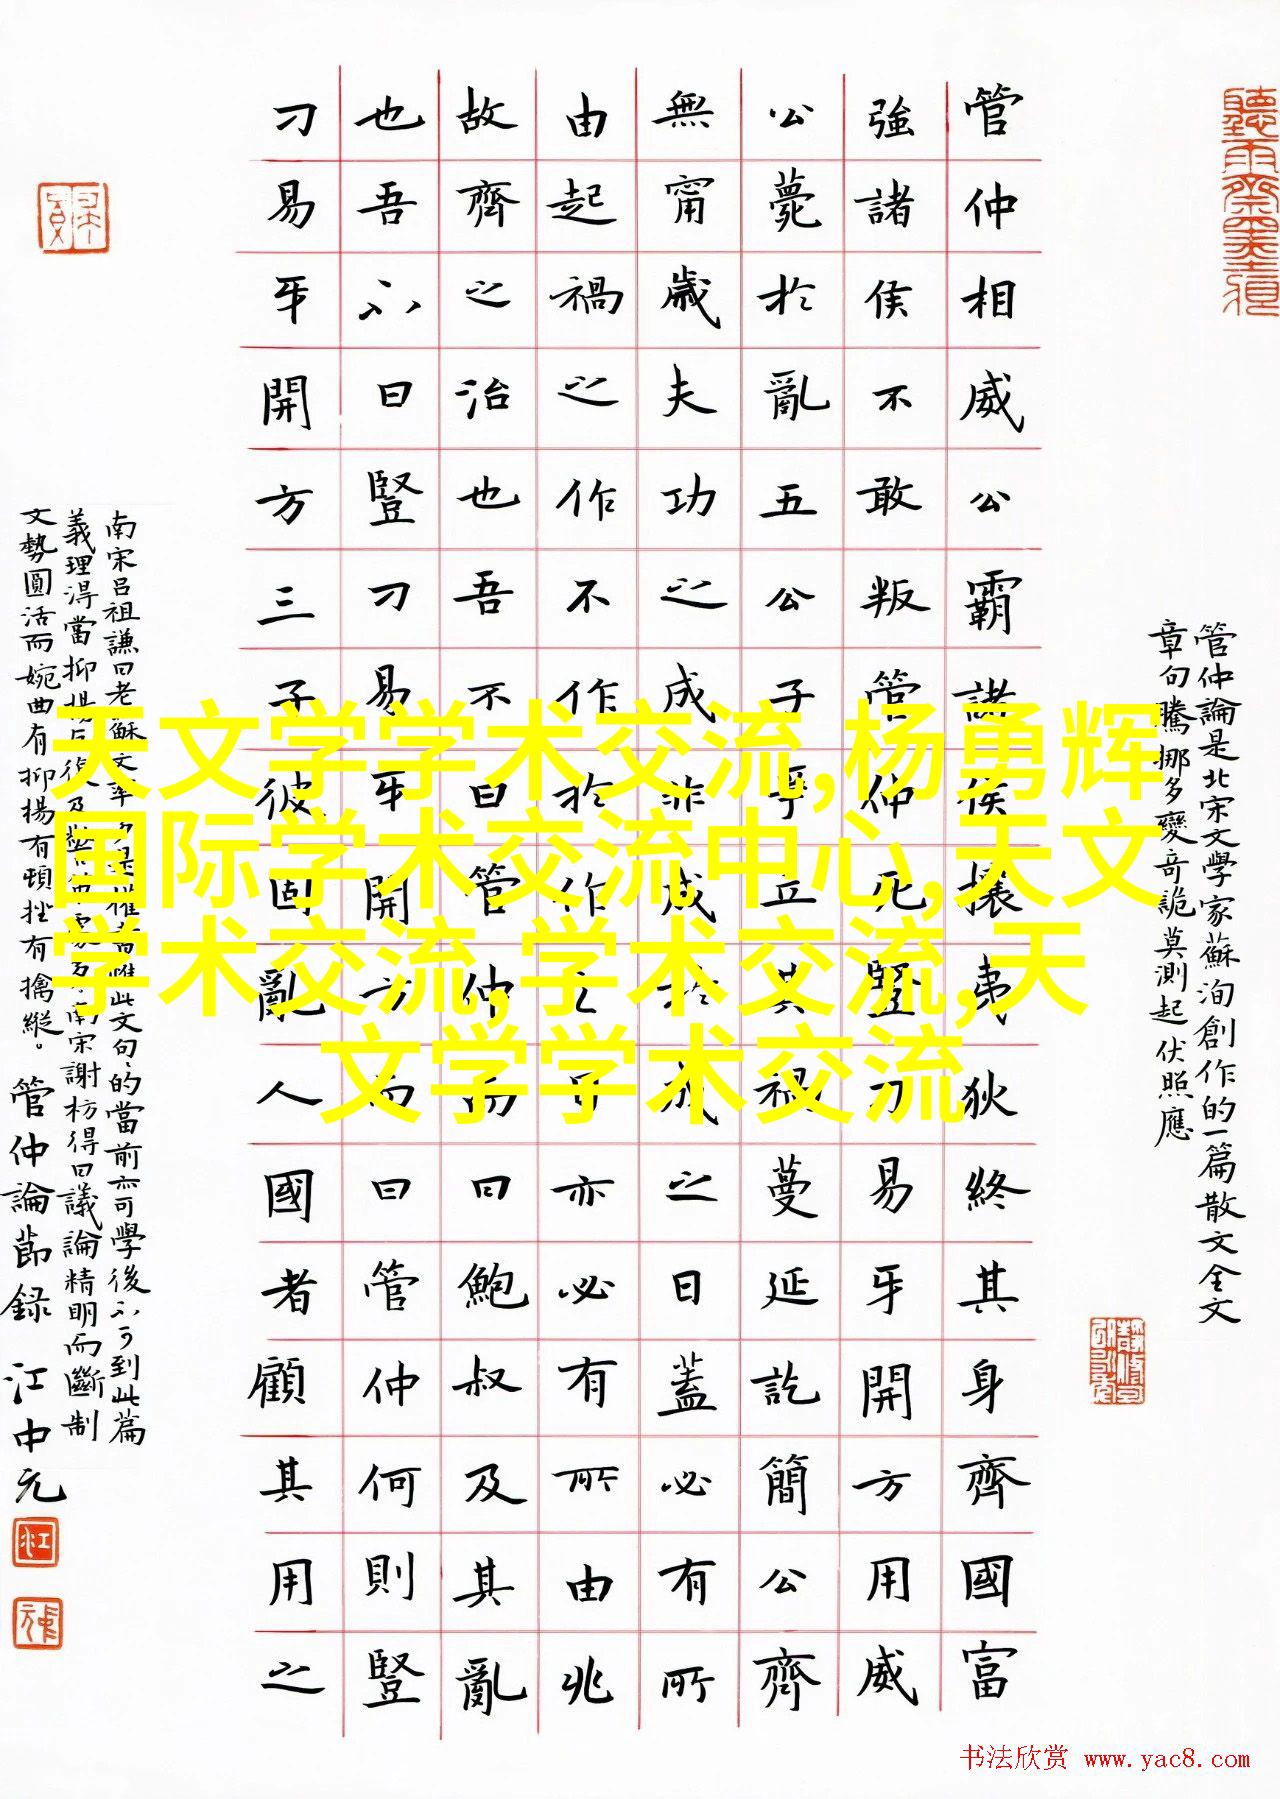 天文学学术交流,杨勇辉
国际学术交流中心,天文
学术交流,学术交流,天
文学学术交流
管仲論是北宋文學家蘇洵創作的一篇散文全文
章句騰挪多變奇詭莫測起伏照應
管仲相威公霸諸侯攘夷狄終其身齊國富
強諸侯不敢叛管仲死豎刁易牙開方用威
公薨於亂五公子爭立其禍蔓延訖簡公齊
無甯歲夫功之成非成於成之日蓋必有所
由起禍之作不作於作之日亦必有所由兆
故齊之治也吾不曰管仲而曰鮑叔及其亂
也吾不曰豎刁易牙開方而曰管仲何則豎
刁易牙開方三子彼固亂人國者顧其用之
南宋呂祖謙曰老蘇文此文句句的當前亦可學後不可到此篇
義理淂當抑揚反復及南宋謝枋得曰議論精明而斷制
文勢圓活而婉曲有抑揚有頓挫有擒縱。管仲論節録 江中元
书法欣赏 www.yac8.com